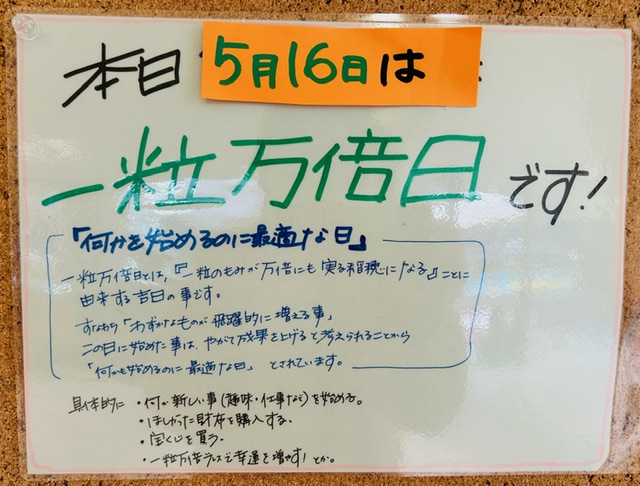 本日
5月16日は
一粒万倍日です!
「何かを始めるのに最適な日」
一粒万倍日とは、『一粒のもみが万倍にも実る稲穂になる』ことに
由来する吉日の事です。
すなわち「わずかなものが飛躍的に増える事」
この日に始めた事は、やがて成果を上げると考えられることから
「何かを始めるのに最適な日」とされています。
具体的に・何か新しい事(趣味・仕事など)を始める。
・ほしかった財布を購入する。
・宝くじを買う。
・一粒万倍ブレスで幸運を増やす!とか。